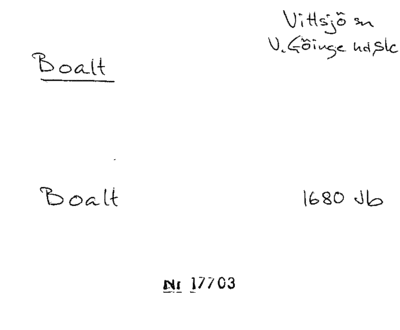 Vittsjö sn
V. Göinge hd, Sk
Boalt
Boalt 1680 Jb
Nr 17703